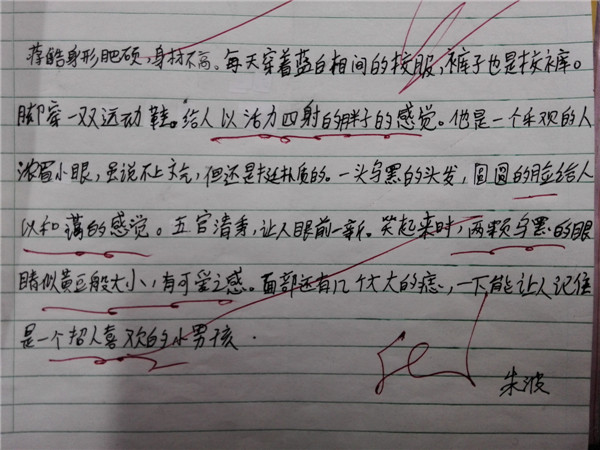 蒋皓身形肥硕，身材不高。每天穿着蓝白相间的校服，裤子也是校裤。
脚穿一双运动鞋。给人以活力四射的胖子的感觉。他是一个乐观的人
浓眉小眼，虽说不上文气，但还是挺朴质的。一头乌黑的头发，圆圆的脸给人
以和蔼的感觉。五官清秀，让人眼前一新。笑起来时，两颗乌黑的眼
睛似黄豆般大小，有可爱之感。面部还有几个大大的痣，一下能让人记住
是一个招人喜欢的小男孩.
朱波